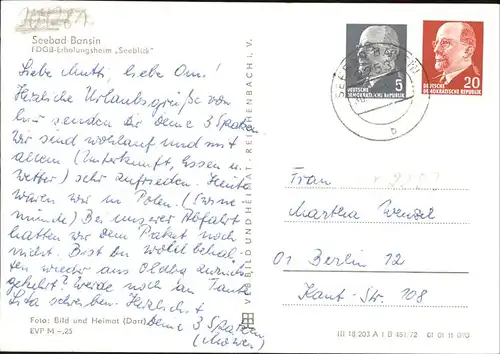 Seebad-Bansin
FDGB-Erholungsheim „Seeblick"
Liebe Mutti, liebe Omi!
Herzliche Urlaubsgrüße von
hier senden Dir Deine 3 Spatzen
Wir sind wohlauf und mit
allem (Unterkunft, Essen u.
Wetter) sehr zufrieden. Heut
waren wir in Polen. (Swine
münde) Bei unserer Abfahrt
hatten wir Dein Paket noch
nicht. Bist Du wohlbehal-
ten wieder aus Oldbg zurück
gekehrt? Werde noch an Tante
Lita schreiben. Herzlichst
Deine 3 Spatzen
(Möwen)
Foto: Bild und Heimat (Darr)
EVP M –,25
VEB BILD UND HEIMAT · REICHENBACH I. V.
5
DEUTSCHE
DEMOKRATISCHE REPUBLIK
20
DEUTSCHE
DEMOKRATISCHE REPUBLIK
b
Frau
Martha Wenzel
01 Berlin 12
Kant-Str. 108
III 18 203 A 1 B 451/72 01 01 11 010